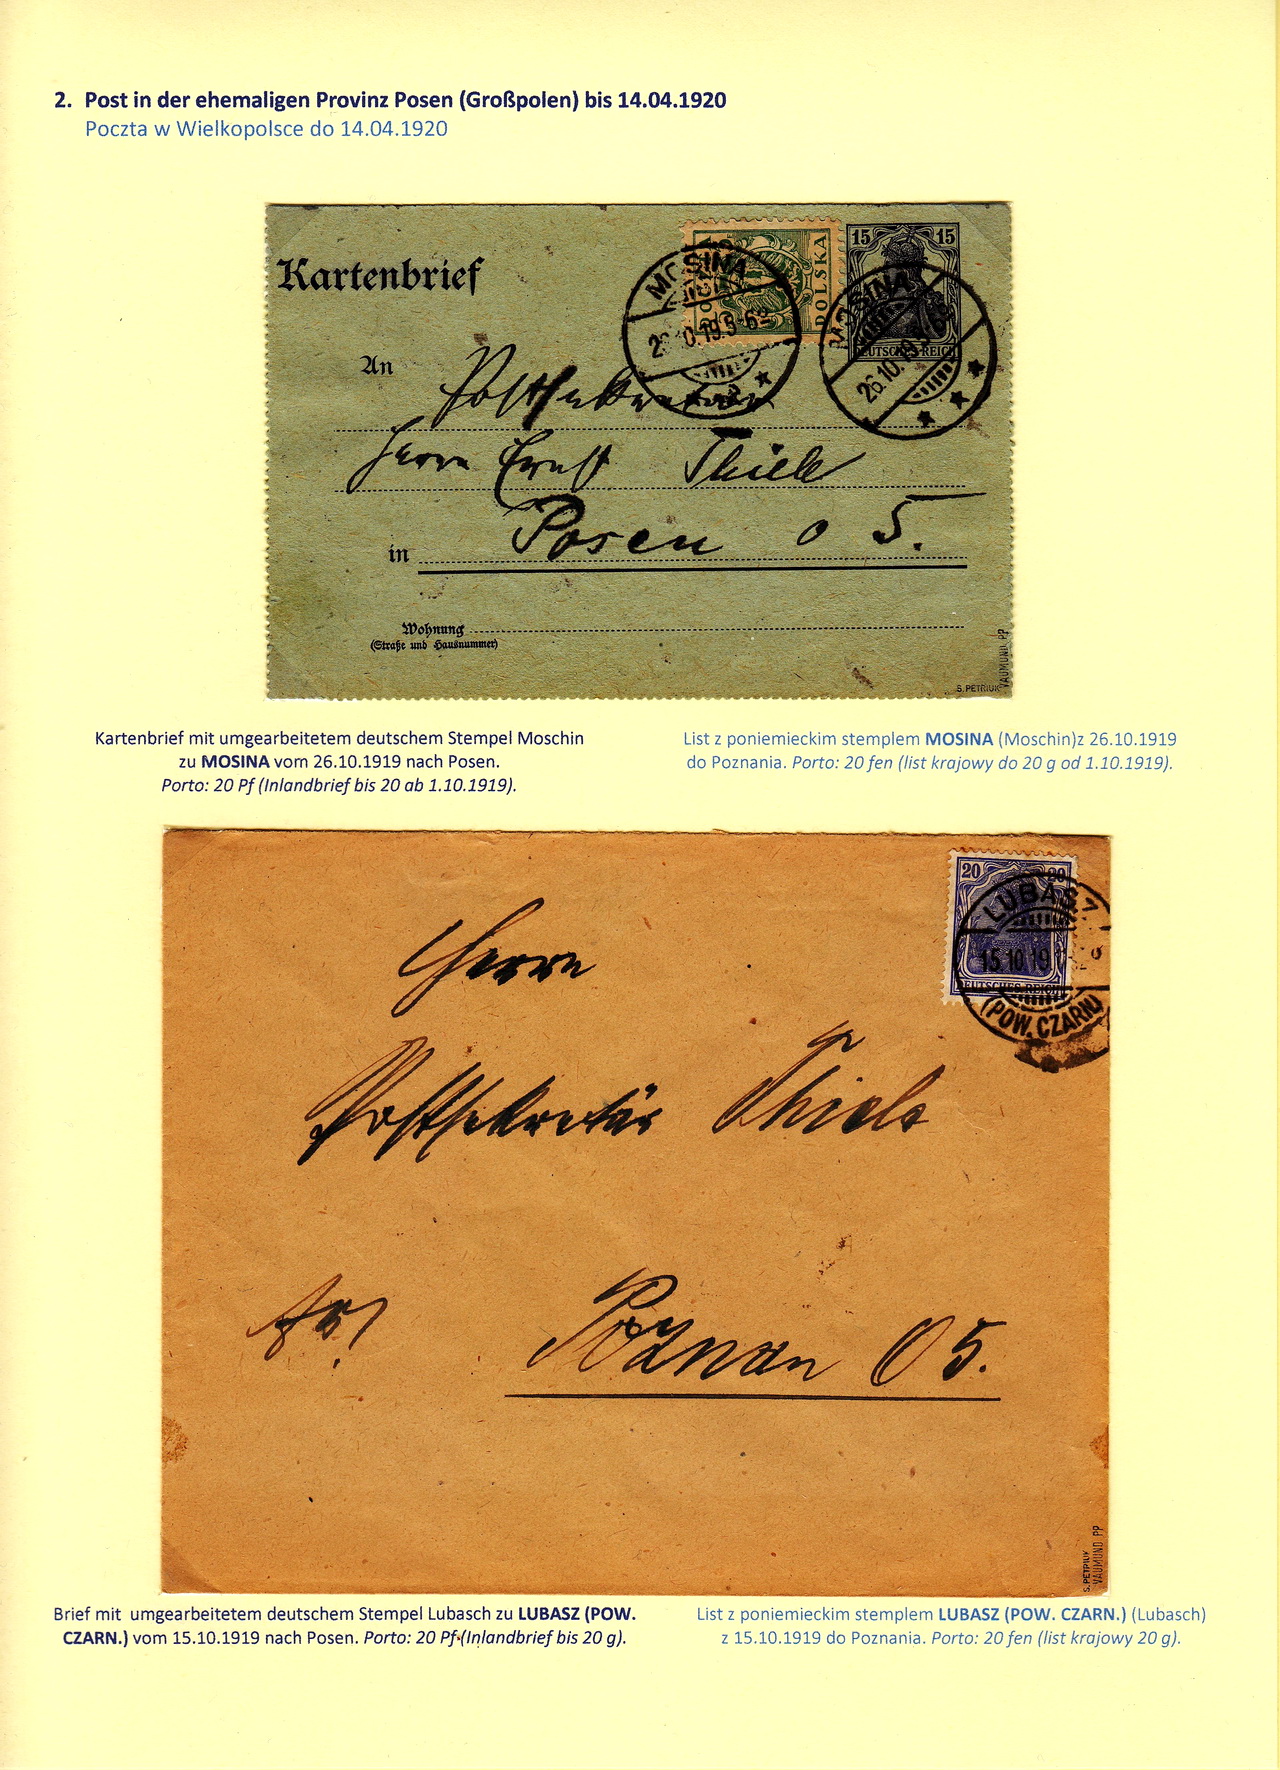 2. Post in der ehemaligen Provinz Posen (Großpolen) bis 14.04.1920
Poczta w Wielkopolsce do 14.04.1920
Kartenbrief
15 15
POLSKA
DEUTSCHES REICH
MOSINA
26.10.19.5-6
MOSINA
26.10.19.5-6
An
Postsekretär
Herrn Ernst Thiele
in Posen O 5.
Wohnung
(Straße und Hausnummer)
S. PETRIUK
VAUMUND PP
Kartenbrief mit umgearbeitetem deutschem Stempel Moschin
zu MOSINA vom 26.10.1919 nach Posen.
Porto: 20 Pf (Inlandbrief bis 20 ab 1.10.1919).
List z poniemieckim stemplem MOSINA (Moschin)z 26.10.1919
do Poznania. Porto: 20 fen (list krajowy do 20 g od 1.10.1919).
20 20
DEUTSCHES REICH
LUBASZ
15.10.19
(POW. CZARN)
Herrn
Postsekretär Thiele
Poznan O 5.
S. PETRIUK
VAUMUND PP
Brief mit umgearbeitetem deutschem Stempel Lubasch zu LUBASZ (POW.
CZARN.) vom 15.10.1919 nach Posen. Porto: 20 Pf.(Inlandbrief bis 20 g).
List z poniemieckim stemplem LUBASZ (POW. CZARN.) (Lubasch)
z 15.10.1919 do Poznania. Porto: 20 fen (list krajowy 20 g).